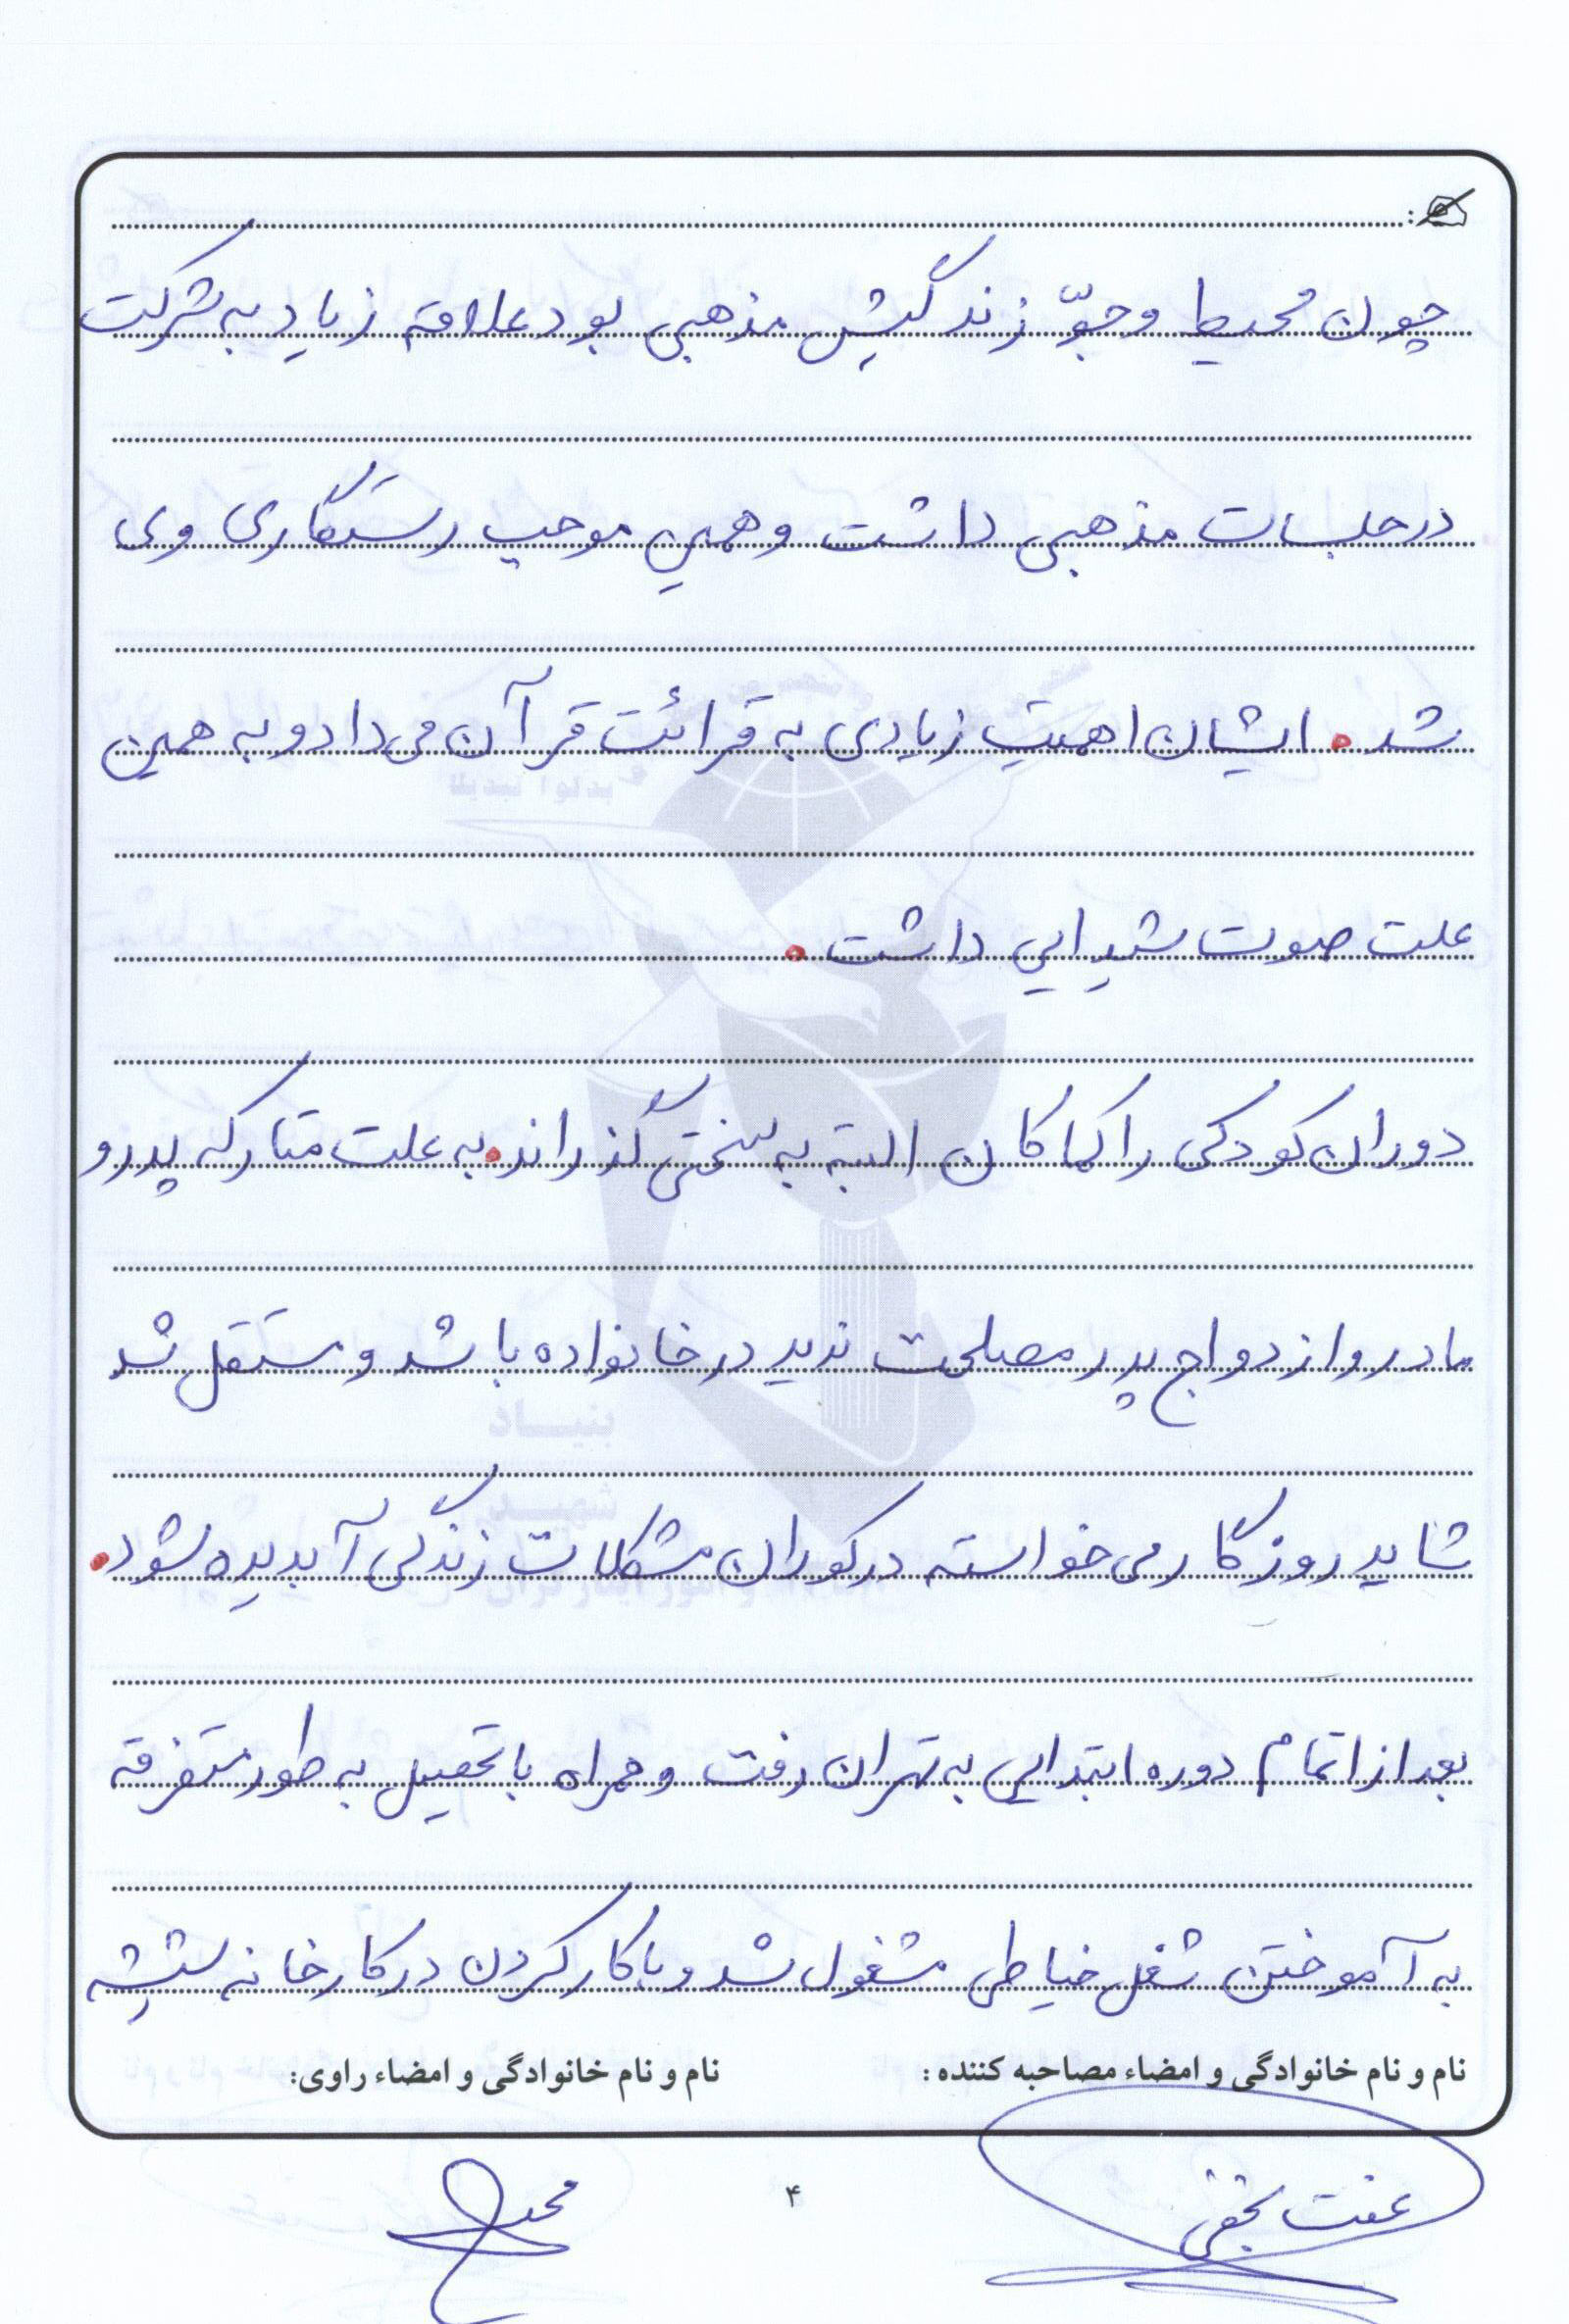 چون محیط و جوّ زندگیش مذهبی بود علاقه زیاد به شرکت
در جلسات مذهبی داشت و همین موجب رستگاری وی
شد. ایشان اهمیت زیادی به قرائت قرآن می داد و به همین
علت صوت شیدایی داشت.
دوران کودکی را کماکان البته به سختی گذراند. به علت متارکه پدر و
مادر و ازدواج پدر مصلحت ندید در خانواده باشد و مستقل شد
شاید روزگار می خواسته در کوران مشکلات زندگی آبدیده شود.
بعد از اتمام دوره ابتدایی به تهران رفت و همراه با تحصیل به طور متفرقه
به آموختن شغل خیاطی مشغول شد و با کار کردن در کارخانه شیشه
نام و نام خانوادگی و امضاء مصاحبه کننده: نام و نام خانوادگی و امضاء راوی:
عفت نجفی ۴
بنیاد
شهید